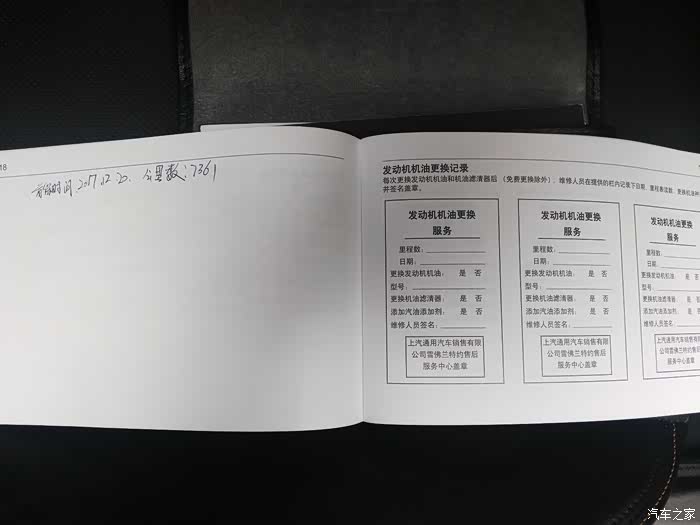 18
首保时间:2017.12.20. 公里数:7361
发动机机油更换记录
每次更换发动机机油和机油滤清器后（免费更换除外），维修人员在提供的栏内记录下日期、里程表读数、更换机油种
并签名盖章。
发动机机油更换
服务
里程数:
日期:
更换发动机机油: 是 否
型号:
更换机油滤清器: 是 否
添加汽油添加剂: 是 否
维修人员签名:
上汽通用汽车销售有限
公司雪佛兰特约售后
服务中心盖章
发动机机油更换
服务
里程数:
日期:
更换发动机机油: 是 否
型号:
更换机油滤清器: 是 否
添加汽油添加剂: 是 否
维修人员签名:
上汽通用汽车销售有限
公司雪佛兰特约售后
服务中心盖章
发动机机油更换
服务
里程数:
日期:
更换发动机机油: 是 否
型号:
更换机油滤清器: 是 否
添加汽油添加剂: 是 否
维修人员签名:
上汽通用汽车销售有限
公司雪佛兰特约售后
服务中心盖章
汽车之家